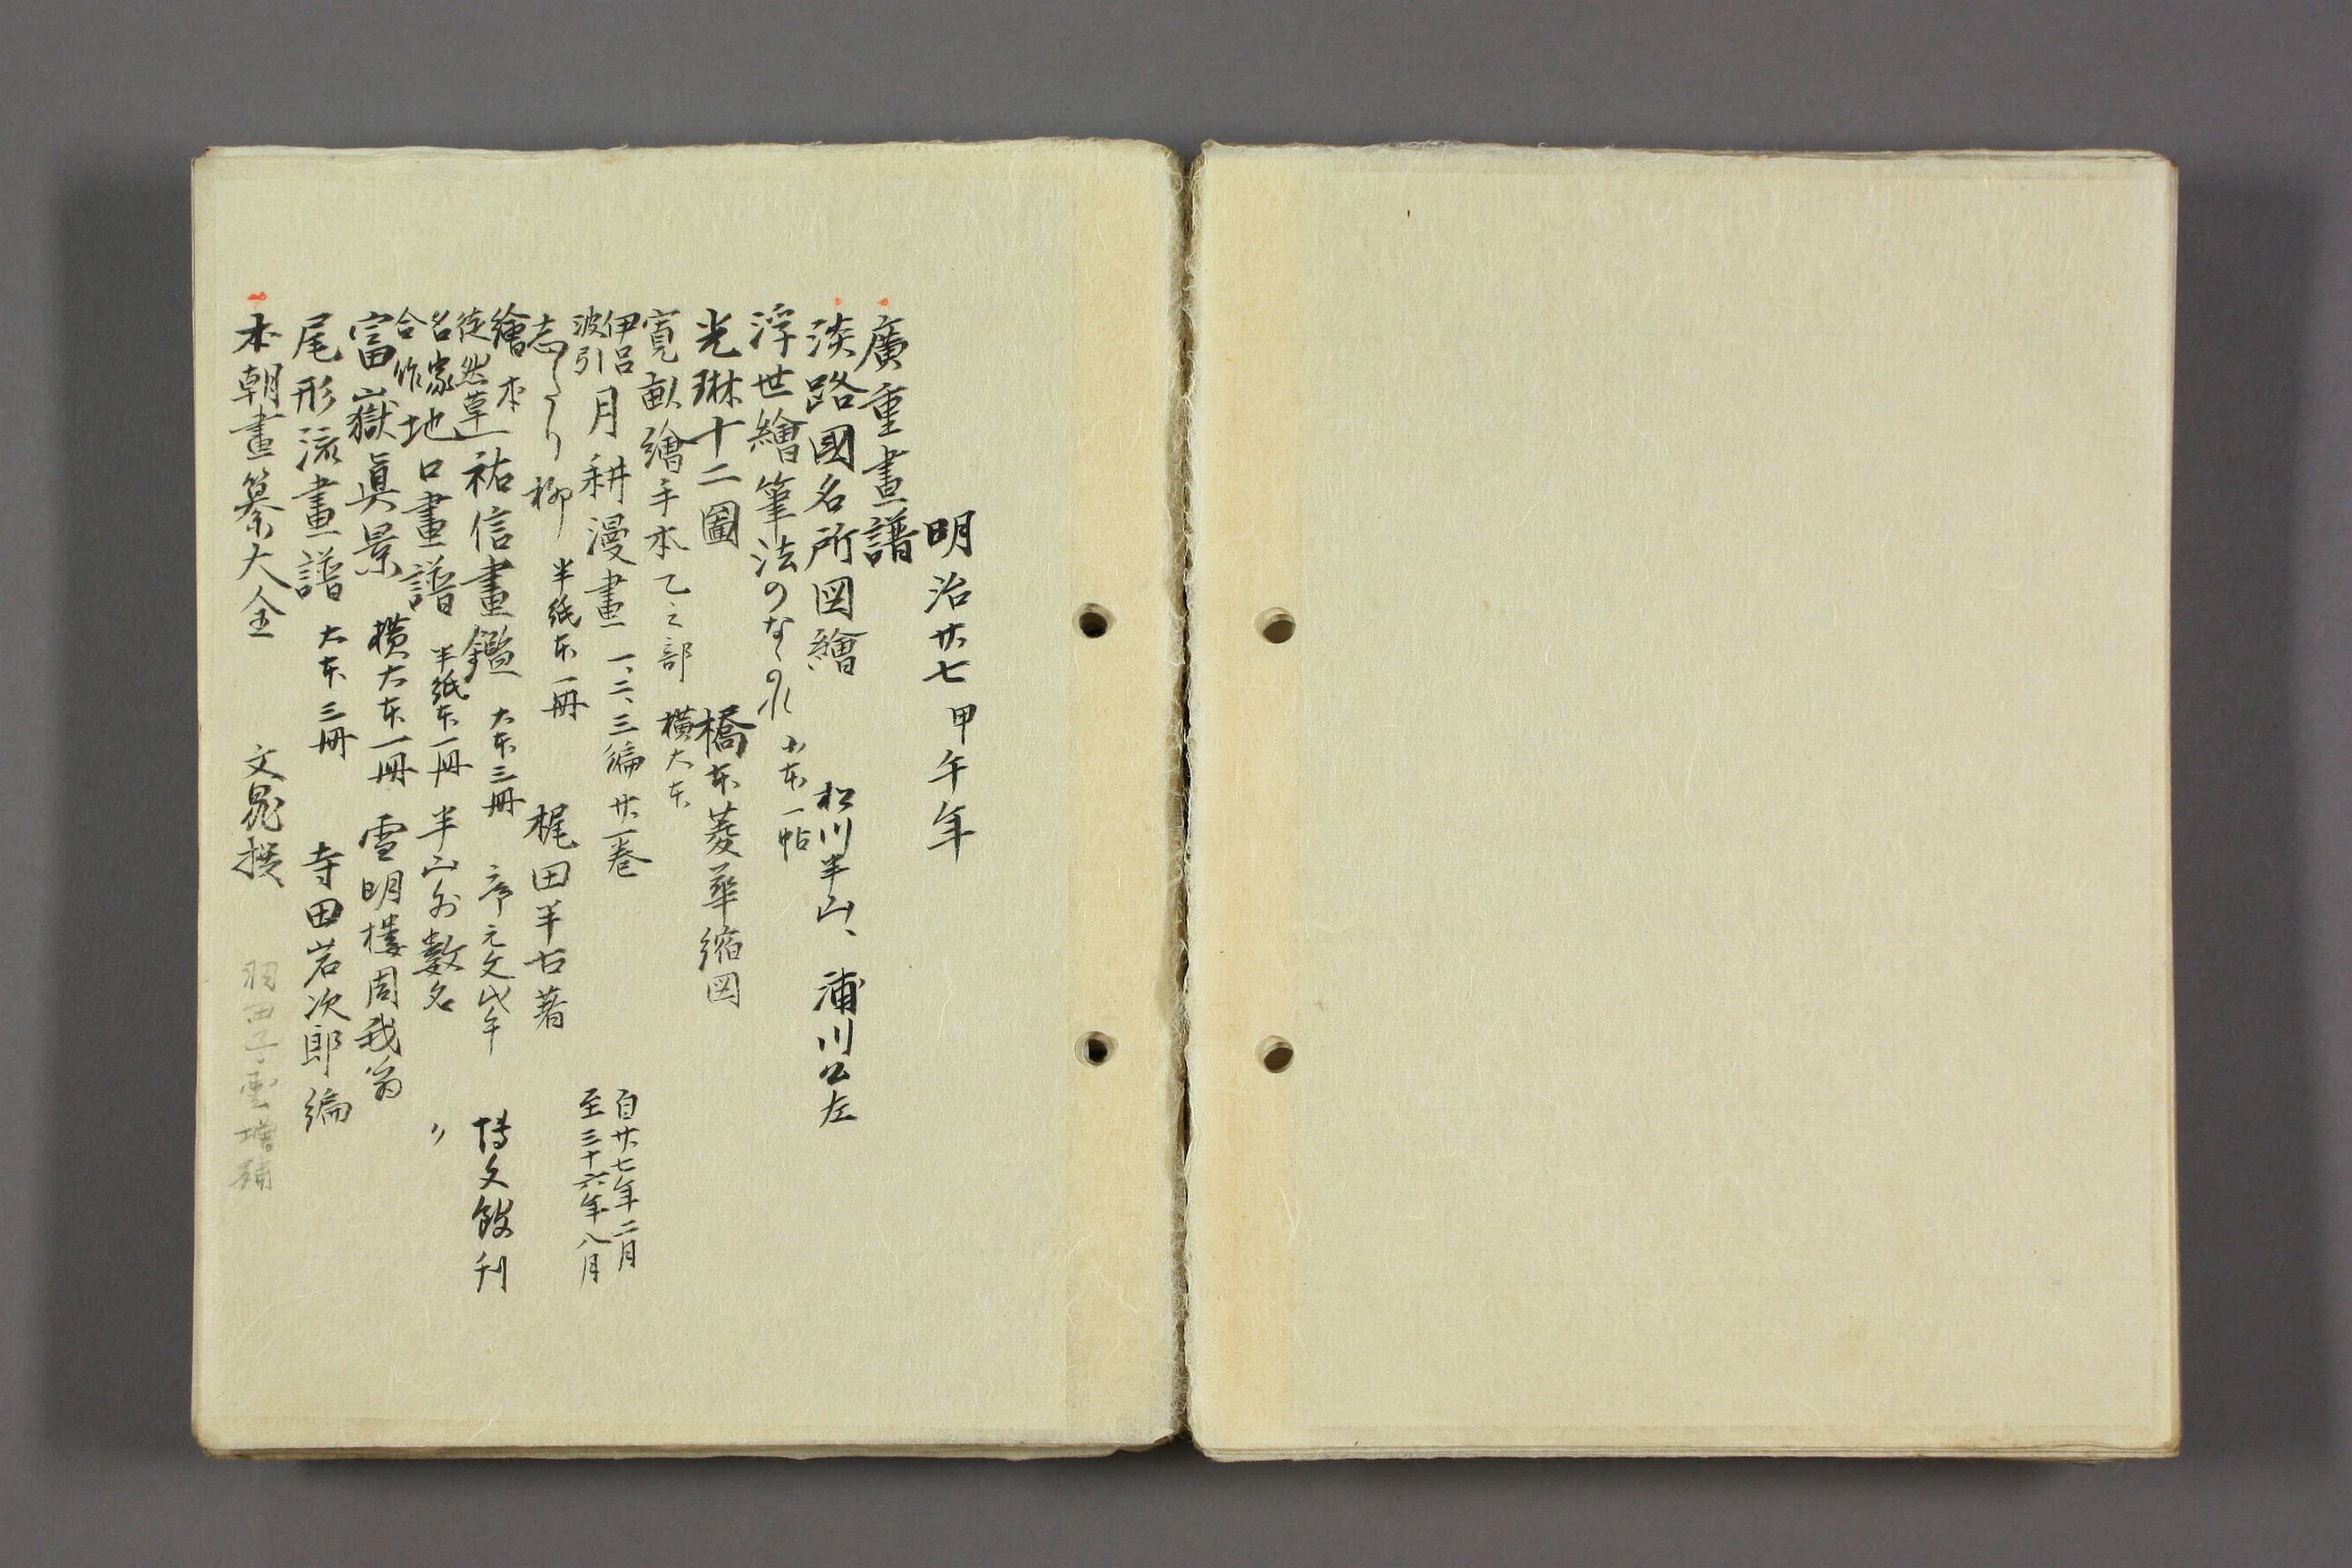 明治廿七甲午年
廣重畫譜
淡路國名所図繪 松川半山、浦川公左
浮世繪筆法のながれ 小本一帖
光琳十二圖 橋本菱華縮図
寛畝繪手本乙之部 横大本
伊呂波引 月耕漫畫 一、二、三編 廿一巻 自廿七年二月 至三十六年八月
志だり柳 半紙本一冊 梶田半古著
繪本徒然草 祐信畫鑑 大本三冊 序元文戊午 博文館刊
名家合作 地口畫譜 半紙本一冊 半山外數名 〃
富嶽眞景 横大本一冊 雪明樓周我翁
尾形流畫譜 大本三冊 寺田岩次郎編
本朝畫纂大全 文晁撰 羽田子雲増補